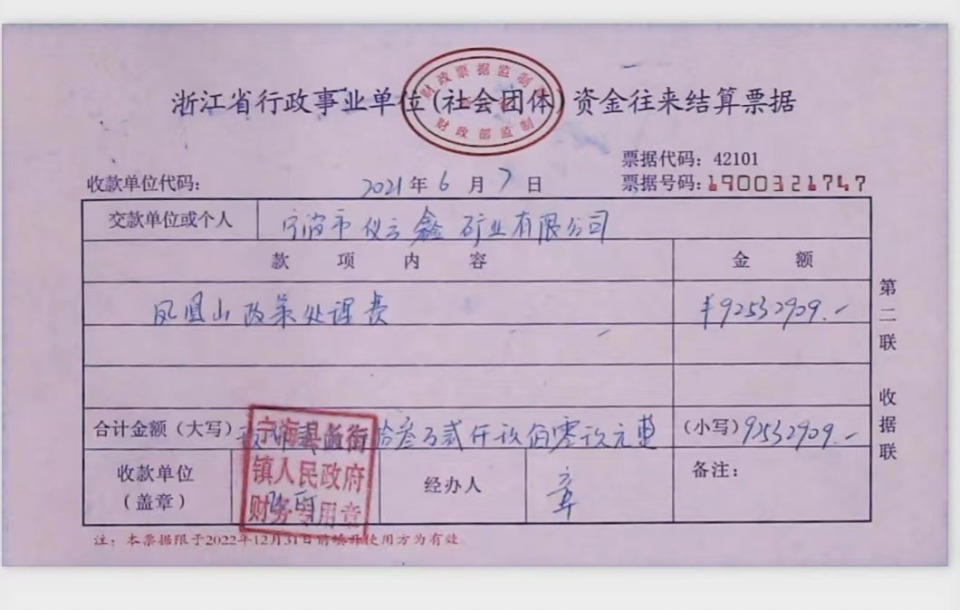 财政票据监制章
浙江省行政事业单位(社会团体)资金往来结算票据
财政部监制
票据代码:42101
收款单位代码:
2021年6月7日
票据号码:1900321747
交款单位或个人
宁海市仪云鑫矿业有限公司
款项内容
金额
凤凰山政策处理费
¥92532909.-
第二联 收据联
合计金额(大写)
拾叁万贰仟玖佰零玖元
(小写)92532909.-
宁海县
镇人民政府
财务专用章
收款单位
(盖章)
经办人
章
备注:
注:本票据限于2022年12月31日前填开使用方为有效